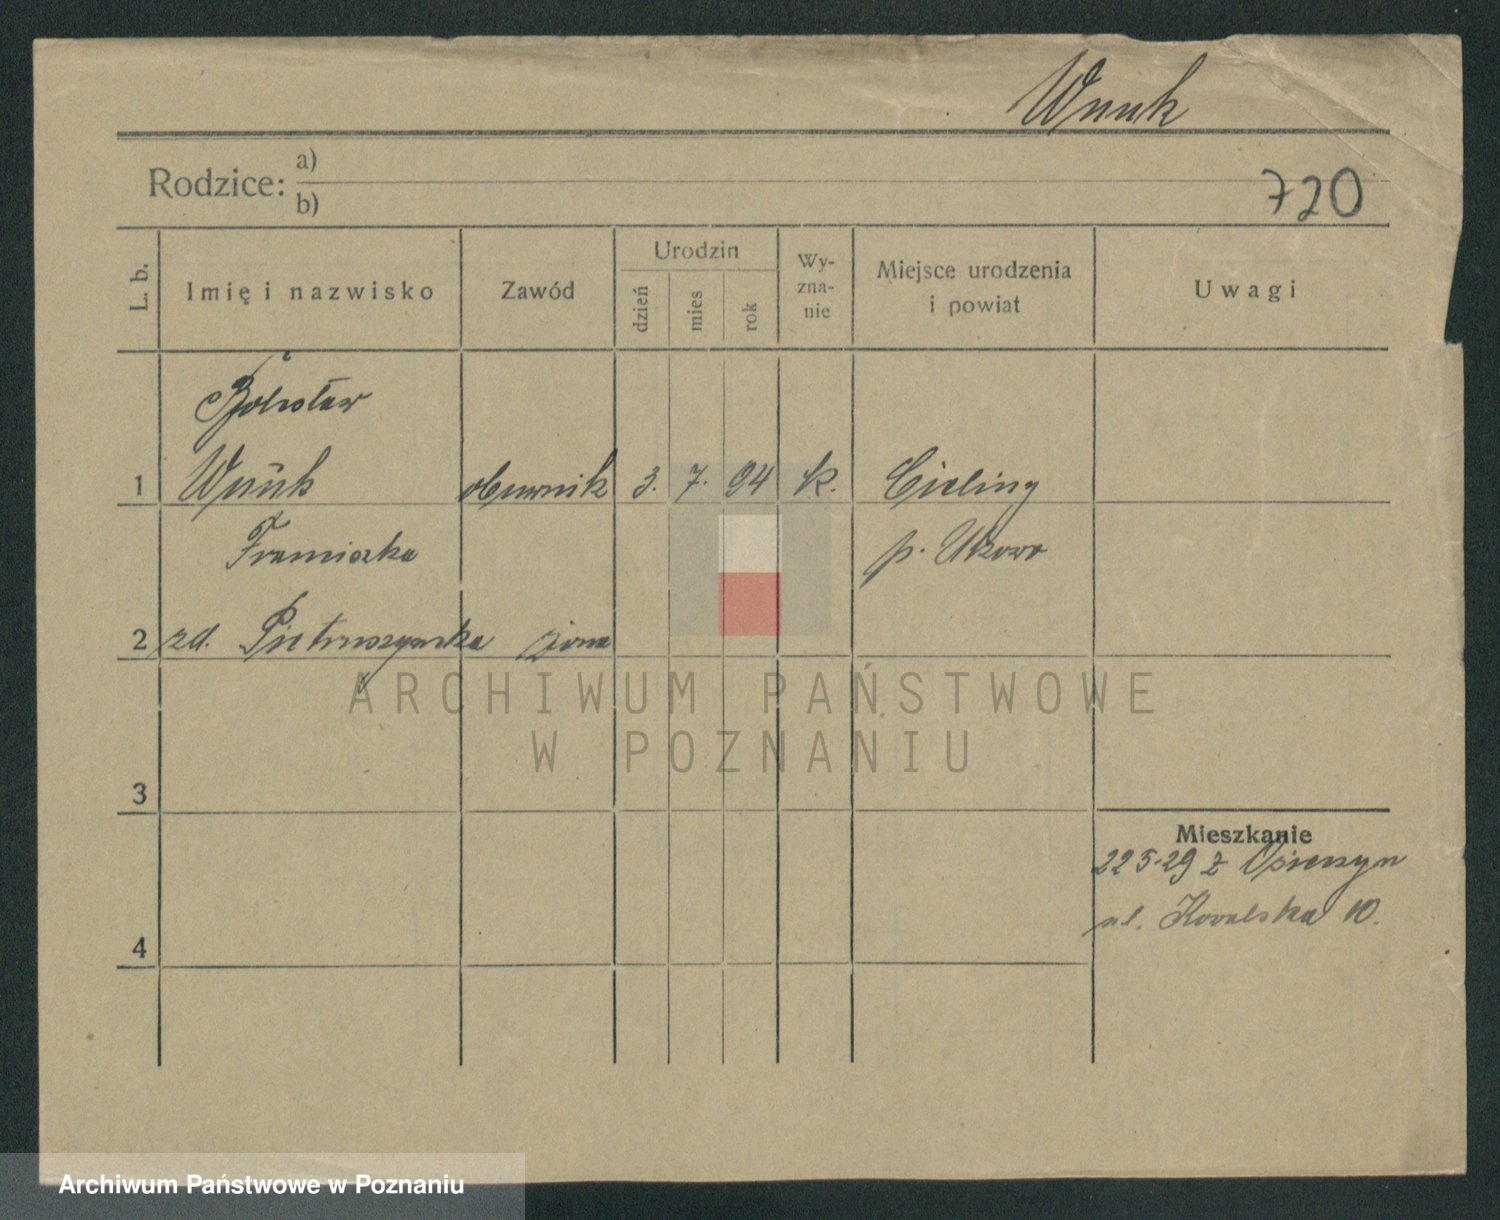 Wnuk
Rodzice:
a)
b)
720
L. b.
Imię i nazwisko
Zawód
Urodzin
dzień
mies
rok
Wy-
zna-
nie
Miejsce urodzenia
i powiat
Uwagi
Bolesław
1 Wnuk obuwnik 3. 7. 94 k. Cieliny
Franciszka p.
2 zd. Pietruszyńska żona
ARCHIWUM PAŃSTWOWE
W POZNANIU
3
Mieszkanie
22 5·29 z
ul. Kowalska 10.
4
Archiwum Państwowe w Poznaniu